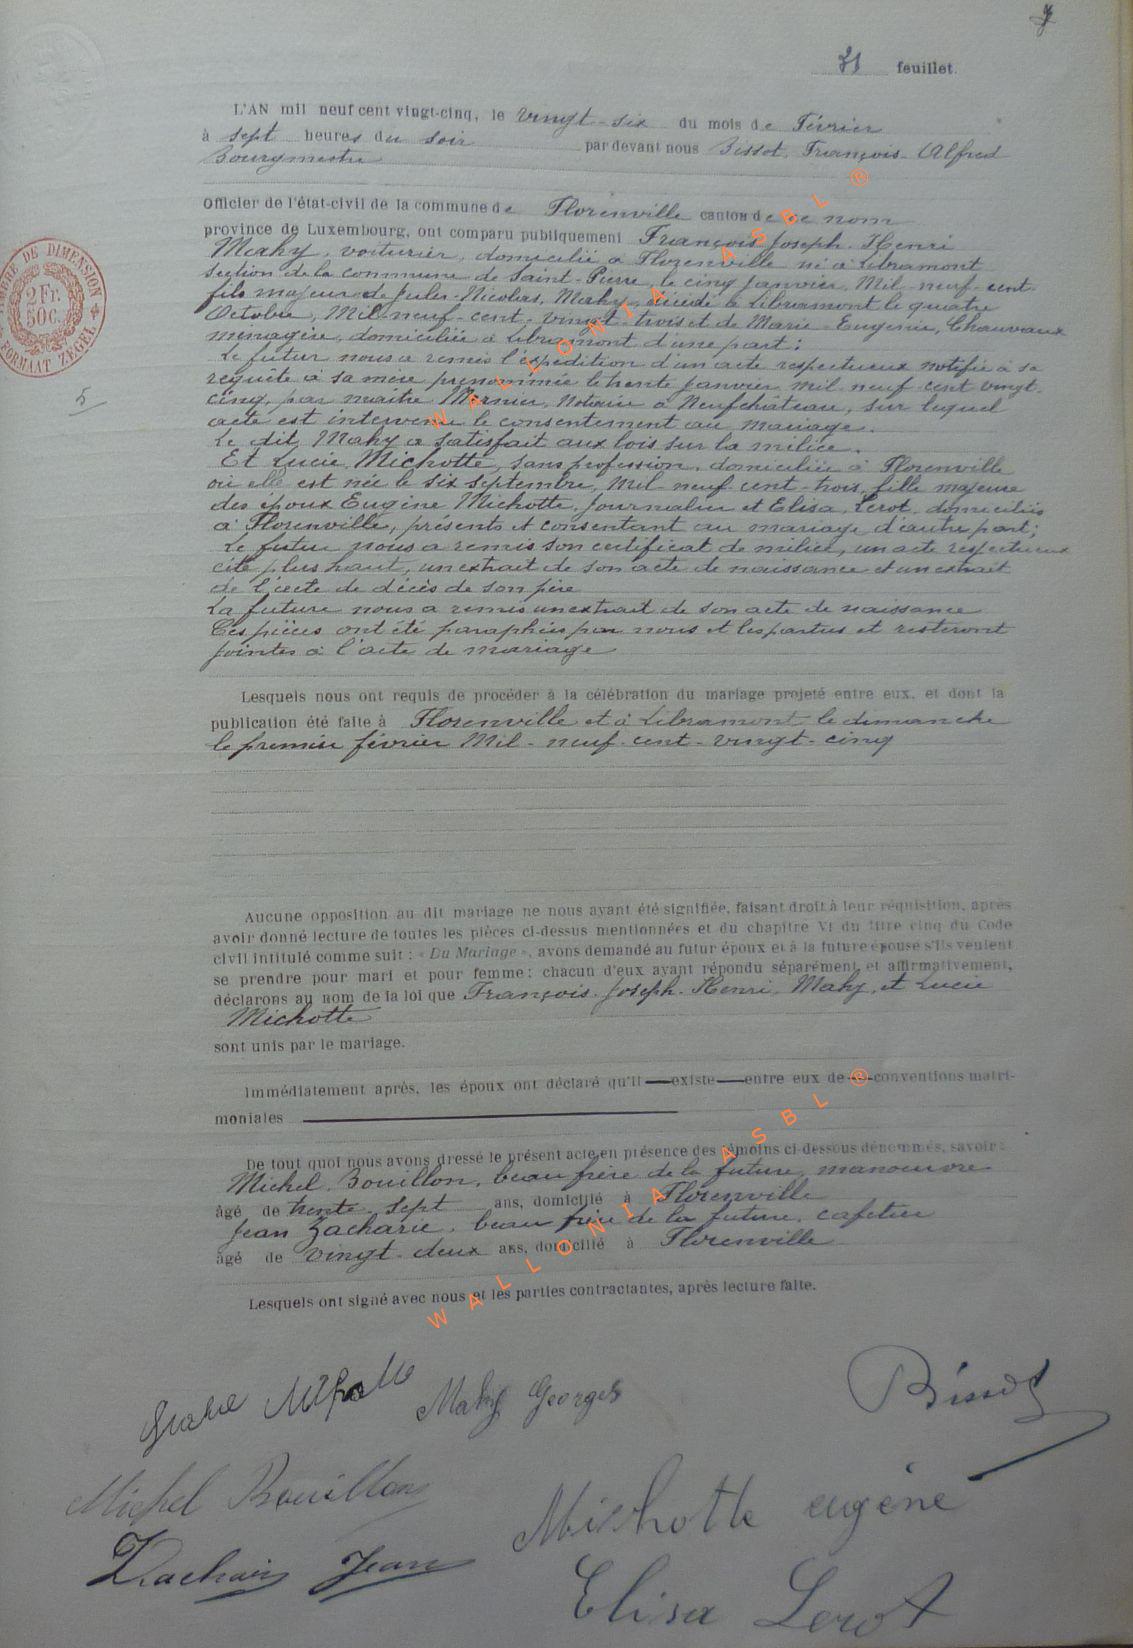 31 feuillet.
L'AN mil neuf cent vingt-cinq, le vingt-six du mois de Février
à sept heures du soir par devant nous Bissot, François-Alfred
Bourgmestre
Officier de l'état-civil de la commune de Florenville canton de ce nom
province de Luxembourg, ont comparu publiquement François-Joseph-Henri
Mahy, voiturier, domicilié à Florenville né à Libramont
section de la commune de Saint-Pierre, le cinq janvier, Mil-neuf-cent
fils majeur de Jules-Nicolas, Mahy, décédé à Libramont le quatre
Octobre, Mil-neuf-cent-vingt-trois et de Marie-Eugénie, Chauvaux
ménagère, domiciliée à Libramont d'une part;
Le futur nous a remis l'expédition d'un acte respectueux notifié à sa
requête à sa mère prénommée le trente janvier mil neuf cent vingt-
cinq, par maître Mernier, Notaire à Neufchâteau, sur lequel
acte est intervenu le consentement au mariage.
Le dit Mahy a satisfait aux lois sur la milice.
Et Lucie, Michotte, sans profession, domiciliée à Florenville
où elle est née le six septembre, Mil-neuf-cent-trois, fille majeure
des époux Eugène Michotte, journalier et Elisa, Lerot, domiciliés
à Florenville, présents et consentant au mariage d'autre part;
Le futur nous a remis son certificat de milice, un acte respectueux
cité plus haut, un extrait de son acte de naissance et un extrait
de l'acte de décès de son père
La future nous a remis un extrait de son acte de naissance
Ces pièces ont été paraphées par nous et les parties et resteront
jointes à l'acte de mariage
Lesquels nous ont requis de procéder à la célébration du mariage projeté entre eux, et dont la
publication été faite à Florenville et à Libramont le dimanche
le premier février Mil-neuf-cent-vingt-cinq
Aucune opposition au dit mariage ne nous ayant été signifiée, faisant droit à leur réquisition, après
avoir donné lecture de toutes les pièces ci-dessus mentionnées et du chapitre VI du titre cinq du Code
civil intitulé comme suit : « Du Mariage », avons demandé au futur époux et à la future épouse s'ils veulent
se prendre pour mari et pour femme; chacun d'eux ayant répondu séparément et affirmativement,
déclarons au nom de la loi que François-Joseph-Henri Mahy, et Lucie
Michotte
sont unis par le mariage.
Immédiatement après, les époux ont déclaré qu'il existe entre eux de conventions matri-
moniales
De tout quoi nous avons dressé le présent acte en présence des témoins ci-dessous dénommés, savoir :
Michel Bouillon, beau frère de la future, manoeuvre
âgé de trente-sept ans, domicilié à Florenville
Jean Zacharie, beau frère de la future, cafetier
âgé de vingt-deux ans, domicilié à Florenville
Lesquels ont signé avec nous et les parties contractantes, après lecture faite.
Mahy Georges
Bissot
Michel Bouillon
Michotte eugène
Jean
Elisa Lerot
TIMBRE DE DIMENSION
2 Fr.
50C.
FORMAAT ZEGEL
5
WALLONIA ASBL ®
WALLONIA ASBL ®